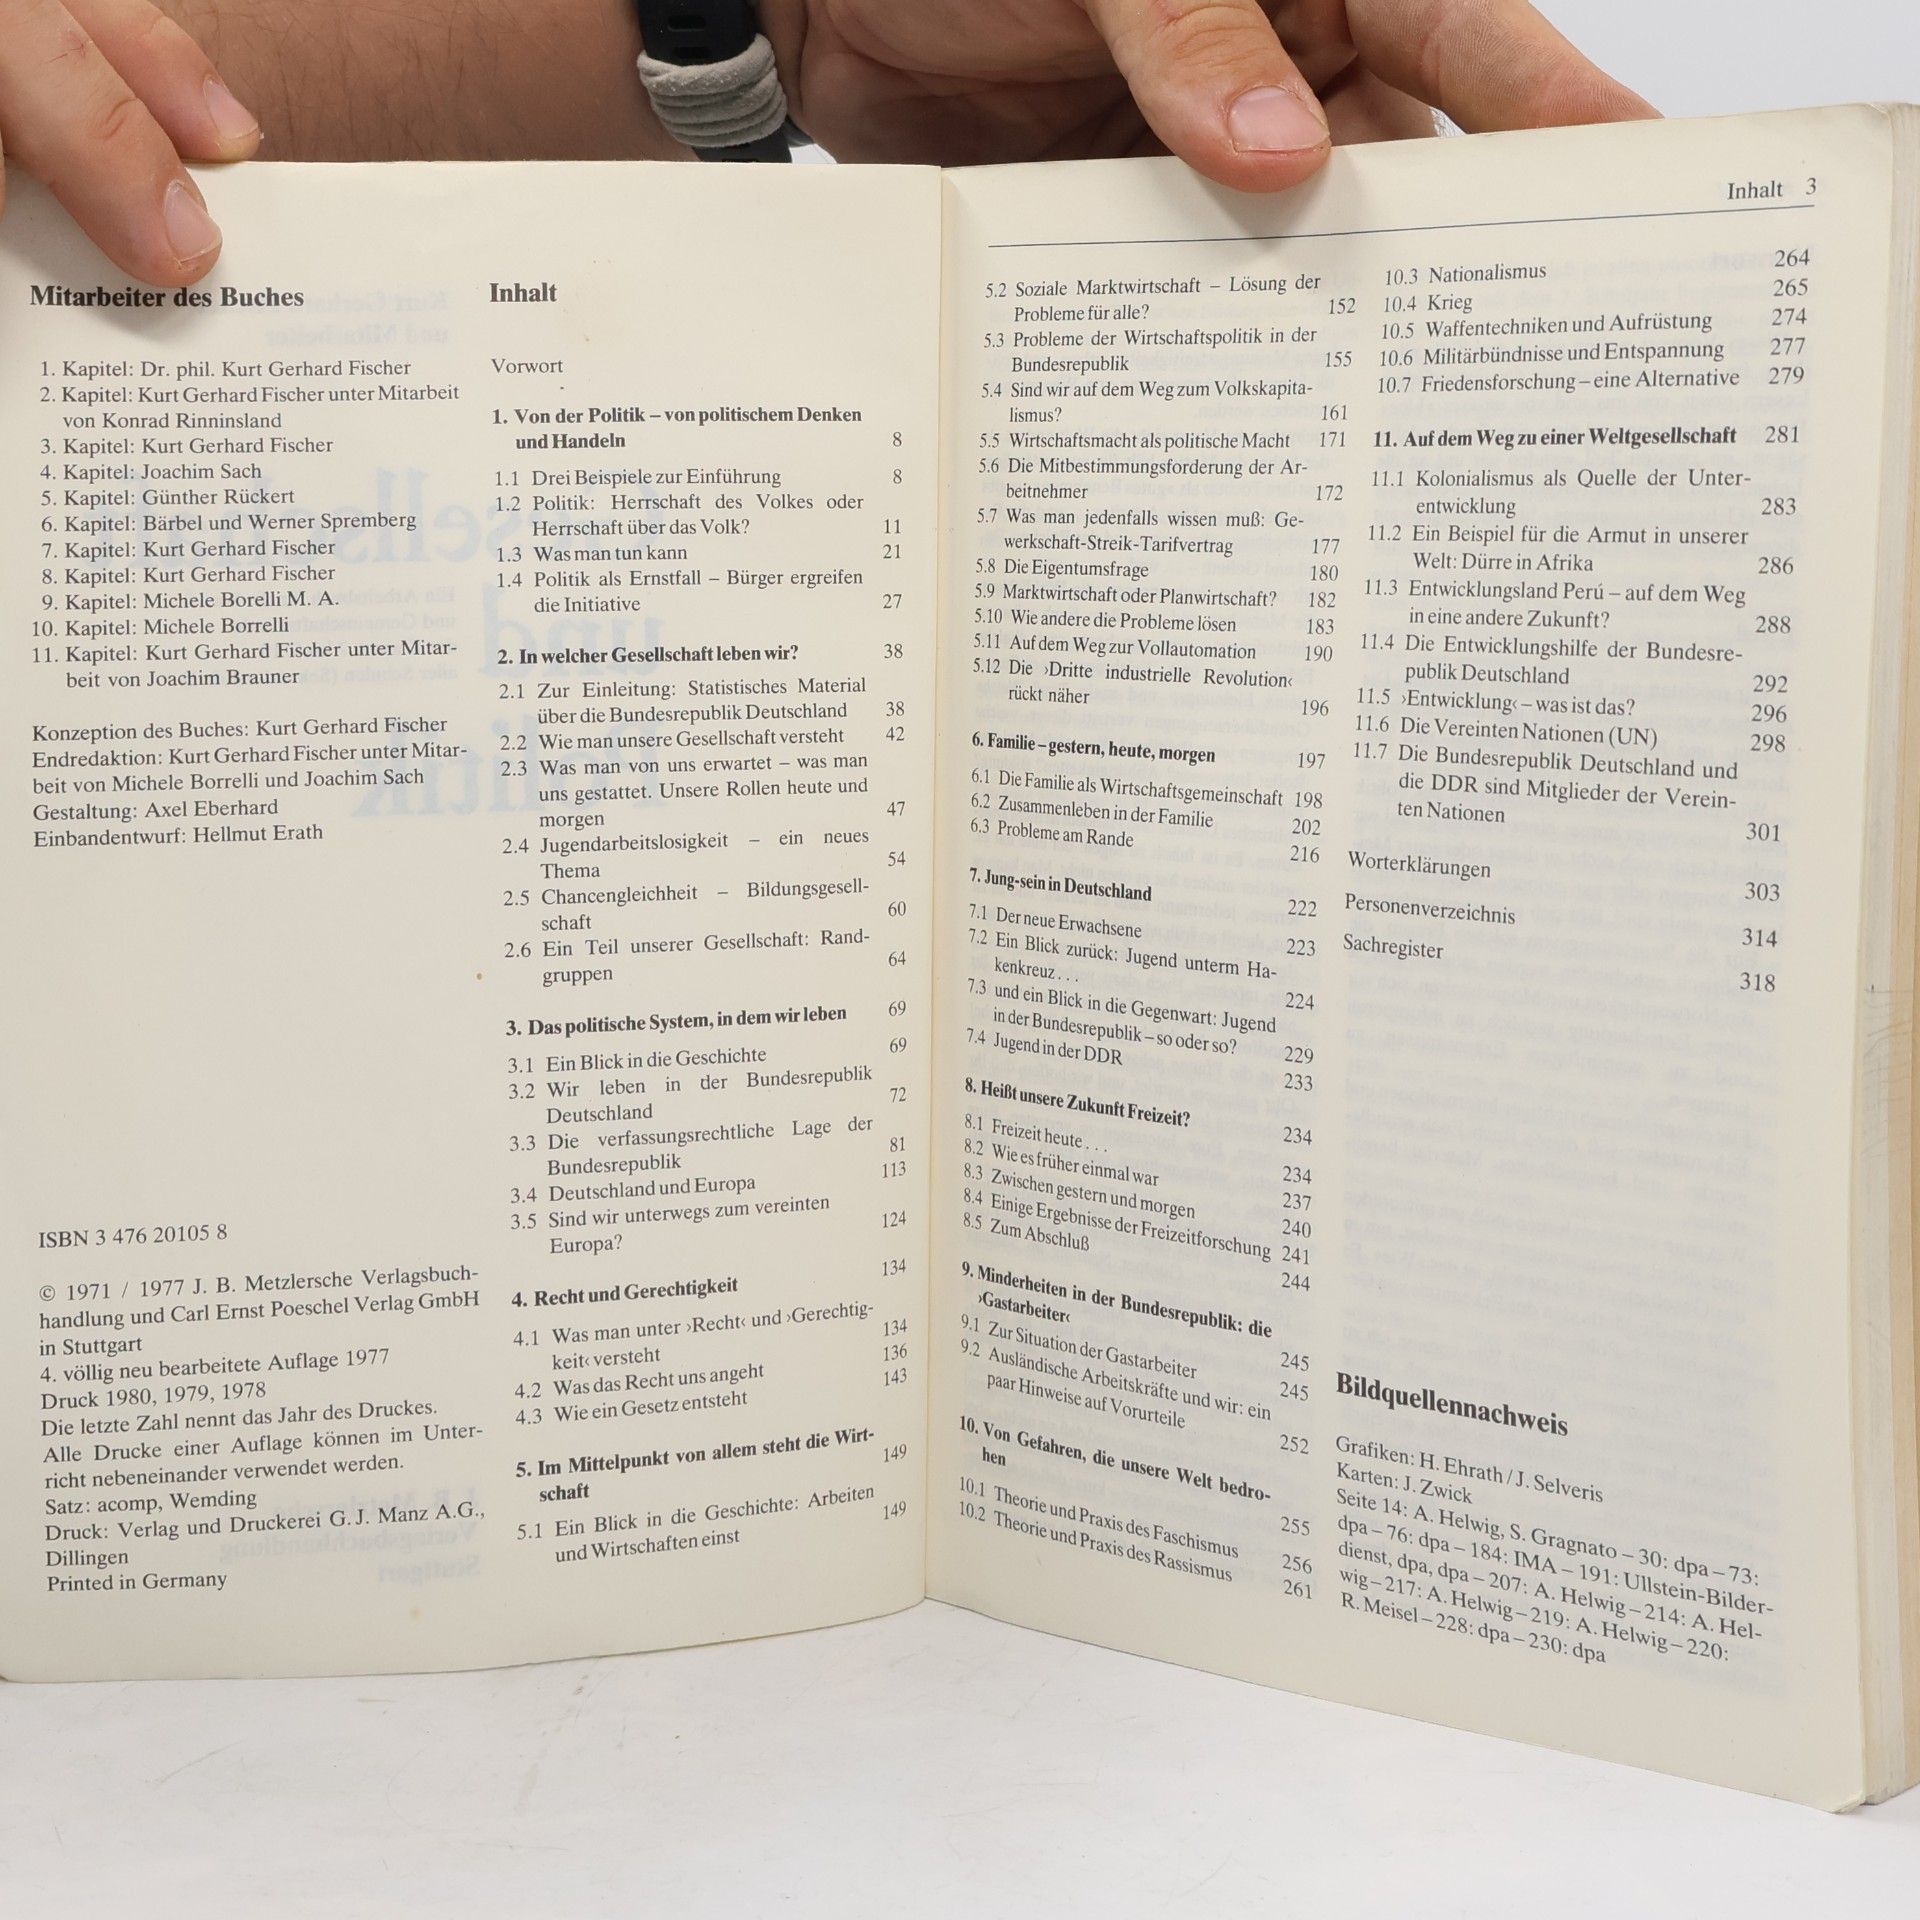 Mitarbeiter des Buches
1. Kapitel: Dr. phil. Kurt Gerhard Fischer
2. Kapitel: Kurt Gerhard Fischer unter Mitarbeit
von Konrad Rinninsland
3. Kapitel: Kurt Gerhard Fischer
4. Kapitel: Joachim Sach
5. Kapitel: Günther Rückert
6. Kapitel: Bärbel und Werner Spremberg
7. Kapitel: Kurt Gerhard Fischer
8. Kapitel: Kurt Gerhard Fischer
9. Kapitel: Michele Borelli M. A.
10. Kapitel: Michele Borrelli
11. Kapitel: Kurt Gerhard Fischer unter Mitar-
beit von Joachim Brauner
Konzeption des Buches: Kurt Gerhard Fischer
Endredaktion: Kurt Gerhard Fischer unter Mitar-
beit von Michele Borrelli und Joachim Sach
Gestaltung: Axel Eberhard
Einbandentwurf: Hellmut Erath
ISBN 3 476 20105 8
© 1971 / 1977 J. B. Metzlersche Verlagsbuch-
handlung und Carl Ernst Poeschel Verlag GmbH
in Stuttgart
4. völlig neu bearbeitete Auflage 1977
Druck 1980, 1979, 1978
Die letzte Zahl nennt das Jahr des Druckes.
Alle Drucke einer Auflage können im Unter-
richt nebeneinander verwendet werden.
Satz: acomp, Wemding
Druck: Verlag und Druckerei G. J. Manz A.G.,
Dillingen
Printed in Germany
Inhalt
Vorwort
1. Von der Politik – von politischem Denken
und Handeln 8
1.1 Drei Beispiele zur Einführung 8
1.2 Politik: Herrschaft des Volkes oder
Herrschaft über das Volk? 11
1.3 Was man tun kann 21
1.4 Politik als Ernstfall – Bürger ergreifen
die Initiative 27
2. In welcher Gesellschaft leben wir? 38
2.1 Zur Einleitung: Statistisches Material
über die Bundesrepublik Deutschland 38
2.2 Wie man unsere Gesellschaft versteht 42
2.3 Was man von uns erwartet – was man
uns gestattet. Unsere Rollen heute und
morgen 47
2.4 Jugendarbeitslosigkeit – ein neues
Thema 54
2.5 Chancengleichheit – Bildungsgesell-
schaft 60
2.6 Ein Teil unserer Gesellschaft: Rand-
gruppen 64
3. Das politische System, in dem wir leben 69
3.1 Ein Blick in die Geschichte 69
3.2 Wir leben in der Bundesrepublik
Deutschland 72
3.3 Die verfassungsrechtliche Lage der
Bundesrepublik 81
3.4 Deutschland und Europa 113
3.5 Sind wir unterwegs zum vereinten
Europa? 124
4. Recht und Gerechtigkeit 134
4.1 Was man unter ›Recht‹ und ›Gerechtig-
keit‹ versteht 134
4.2 Was das Recht uns angeht 136
4.3 Wie ein Gesetz entsteht 143
5. Im Mittelpunkt von allem steht die Wirt-
schaft 149
5.1 Ein Blick in die Geschichte: Arbeiten
und Wirtschaften einst 149
Inhalt 3
5.2 Soziale Marktwirtschaft – Lösung der
Probleme für alle? 152
5.3 Probleme der Wirtschaftspolitik in der
Bundesrepublik 155
5.4 Sind wir auf dem Weg zum Volkskapita-
lismus? 161
5.5 Wirtschaftsmacht als politische Macht 171
5.6 Die Mitbestimmungsforderung der Ar-
beitnehmer 172
5.7 Was man jedenfalls wissen muß: Ge-
werkschaft-Streik-Tarifvertrag 177
5.8 Die Eigentumsfrage 180
5.9 Marktwirtschaft oder Planwirtschaft? 182
5.10 Wie andere die Probleme lösen 183
5.11 Auf dem Weg zur Vollautomation 190
5.12 Die ›Dritte industrielle Revolution‹
rückt näher 196
6. Familie – gestern, heute, morgen 197
6.1 Die Familie als Wirtschaftsgemeinschaft 198
6.2 Zusammenleben in der Familie 202
6.3 Probleme am Rande 216
7. Jung-sein in Deutschland 222
7.1 Der neue Erwachsene 223
7.2 Ein Blick zurück: Jugend unterm Ha-
kenkreuz . . . 224
7.3 und ein Blick in die Gegenwart: Jugend
in der Bundesrepublik – so oder so? 229
7.4 Jugend in der DDR 233
8. Heißt unsere Zukunft Freizeit? 234
8.1 Freizeit heute . . . 234
8.2 Wie es früher einmal war 237
8.3 Zwischen gestern und morgen 240
8.4 Einige Ergebnisse der Freizeitforschung 241
8.5 Zum Abschluß 244
9. Minderheiten in der Bundesrepublik: die
›Gastarbeiter‹ 245
9.1 Zur Situation der Gastarbeiter 245
9.2 Ausländische Arbeitskräfte und wir: ein
paar Hinweise auf Vorurteile 252
10. Von Gefahren, die unsere Welt bedro-
hen 255
10.1 Theorie und Praxis des Faschismus 256
10.2 Theorie und Praxis des Rassismus 261
10.3 Nationalismus 264
10.4 Krieg 265
10.5 Waffentechniken und Aufrüstung 274
10.6 Militärbündnisse und Entspannung 277
10.7 Friedensforschung – eine Alternative 279
11. Auf dem Weg zu einer Weltgesellschaft 281
11.1 Kolonialismus als Quelle der Unter-
entwicklung 283
11.2 Ein Beispiel für die Armut in unserer
Welt: Dürre in Afrika 286
11.3 Entwicklungsland Perú – auf dem Weg
in eine andere Zukunft? 288
11.4 Die Entwicklungshilfe der Bundesre-
publik Deutschland 292
11.5 ›Entwicklung‹ – was ist das? 296
11.6 Die Vereinten Nationen (UN) 298
11.7 Die Bundesrepublik Deutschland und
die DDR sind Mitglieder der Verein-
ten Nationen 301
Worterklärungen 303
Personenverzeichnis 314
Sachregister 318
Bildquellennachweis
Grafiken: H. Ehrath / J. Selveris
Karten: J. Zwick
Seite 14: A. Helwig, S. Gragnato – 30: dpa – 73:
dpa – 76: dpa – 184: IMA – 191: Ullstein-Bilder-
dienst, dpa, dpa – 207: A. Helwig – 214: A. Hel-
wig – 217: A. Helwig – 219: A. Helwig – 220:
R. Meisel – 228: dpa – 230: dpa